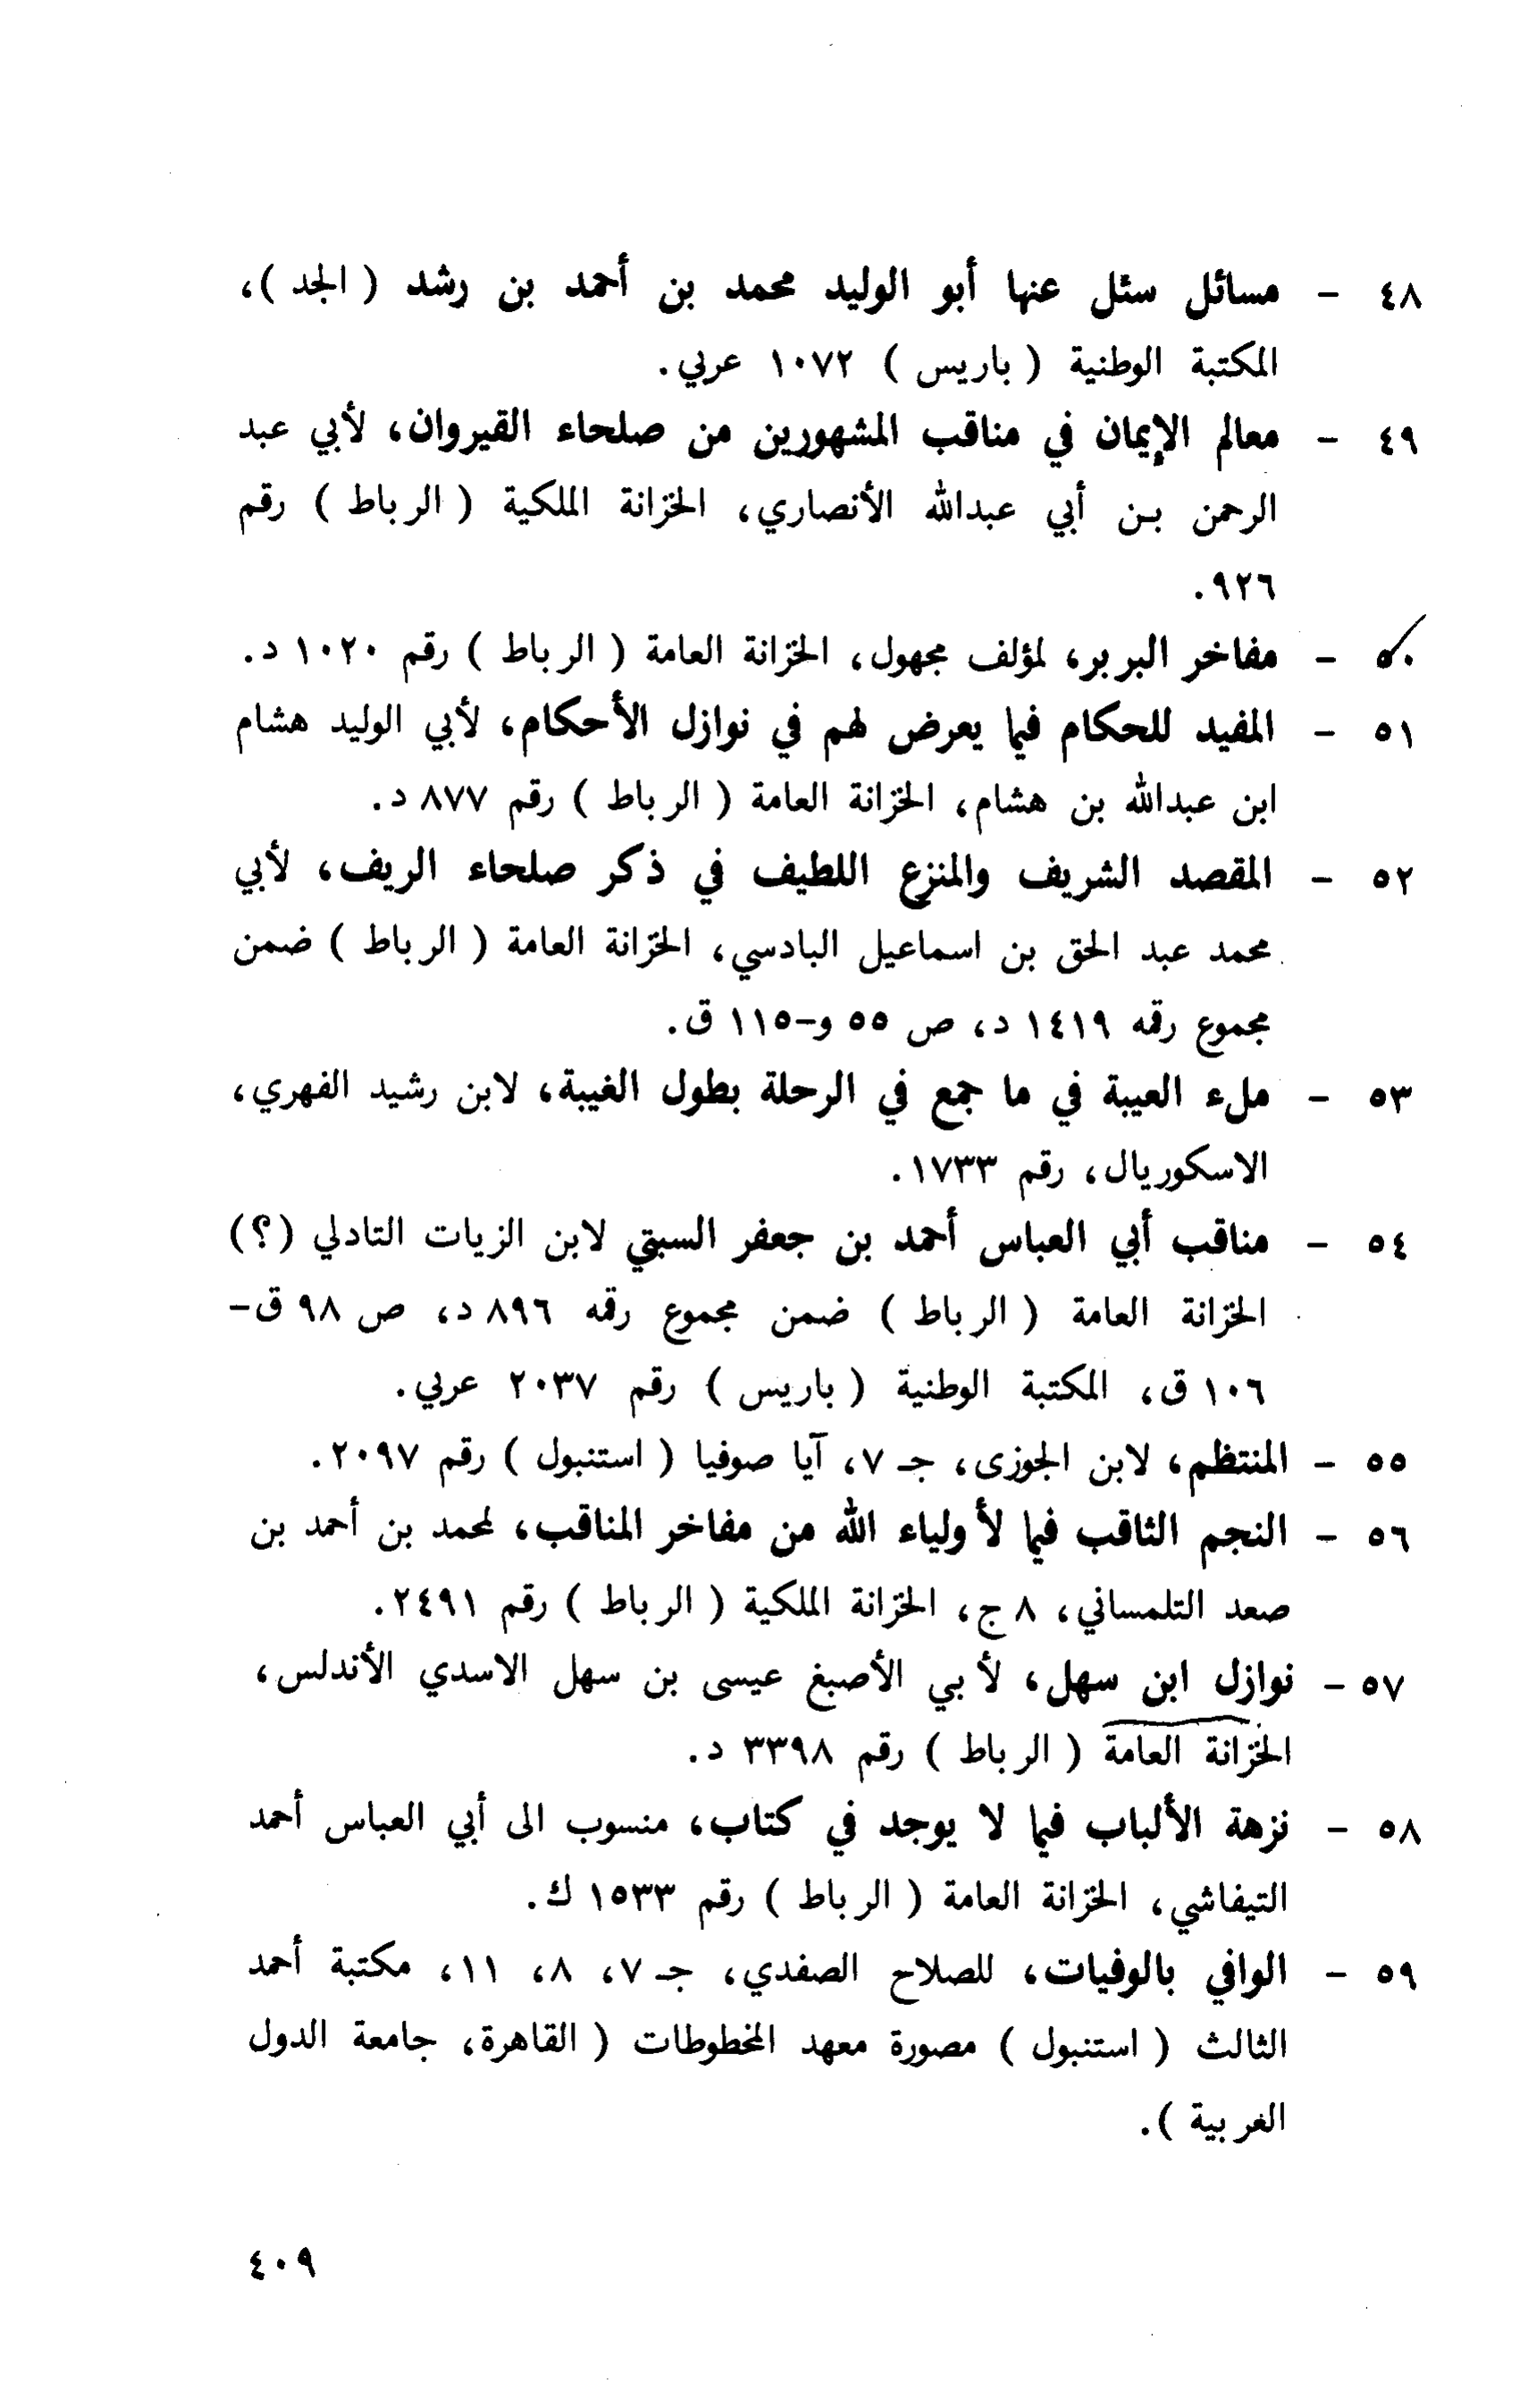 ٤٨ - مسائل سئل عنها أبو الوليد محمد بن أحمد بن رشد ( الجد )،
المكتبة الوطنية ( باريس ) ١٠٧٢ عربي.
٤٩ - معالم الإيمان في مناقب المشهورين من صلحاء القيروان، لأبي عبد
الرحمن بن أبي عبدالله الأنصاري، الخزانة الملكية ( الرباط ) رقم
٩٢٦.
٥٠ - مفاخر البربر، لمؤلف مجهول، الخزانة العامة ( الرباط ) رقم ١٠٢٠ د.
٥١ - المفيد للحكام فيما يعرض لهم في نوازل الأحكام، لأبي الوليد هشام
ابن عبدالله بن هشام، الخزانة العامة ( الرباط ) رقم ٨٧٧ د.
٥٢ - المقصد الشريف والمنزع اللطيف في ذكر صلحاء الريف، لأبي
محمد عبد الحق بن اسماعيل البادسي، الخزانة العامة ( الرباط ) ضمن
مجموع رقمه ١٤١٩ د، ص ٥٥ و-١١٥ ق.
٥٣ - ملء العيبة في ما جمع في الرحلة بطول الغيبة، لابن رشيد الفهري،
الاسكوريال، رقم ١٧٣٣.
٥٤ - مناقب أبي العباس أحمد بن جعفر السبتي لابن الزيات التادلي (؟)
الخزانة العامة ( الرباط ) ضمن مجموع رقمه ٨٩٦ د، ص ٩٨ ق-
١٠٦ ق، المكتبة الوطنية ( باريس ) رقم ٢٠٣٧ عربي.
٥٥ - المنتظم، لابن الجوزى، جـ ٧، آيا صوفيا ( استنبول ) رقم ٢٠٩٧.
٥٦ - النجم الثاقب فيما لأولياء الله من مفاخر المناقب، لمحمد بن أحمد بن
صعد التلمساني، ٨ ج، الخزانة الملكية ( الرباط ) رقم ٢٤٩١.
٥٧ - نوازل ابن سهل، لأبي الأصبغ عيسى بن سهل الاسدي الأندلس،
الخزانة العامة ( الرباط ) رقم ٣٣٩٨ د.
٥٨ - نزهة الألباب فيما لا يوجد في كتاب، منسوب الى أبي العباس أحمد
التيفاشي، الخزانة العامة ( الرباط ) رقم ١٥٣٣ ك.
٥٩ - الوافي بالوفيات، للصلاح الصفدي، جـ ٧، ٨، ١١، مكتبة أحمد
الثالث ( استنبول ) مصورة معهد المخطوطات ( القاهرة، جامعة الدول
الغربية ).
٤٠٩